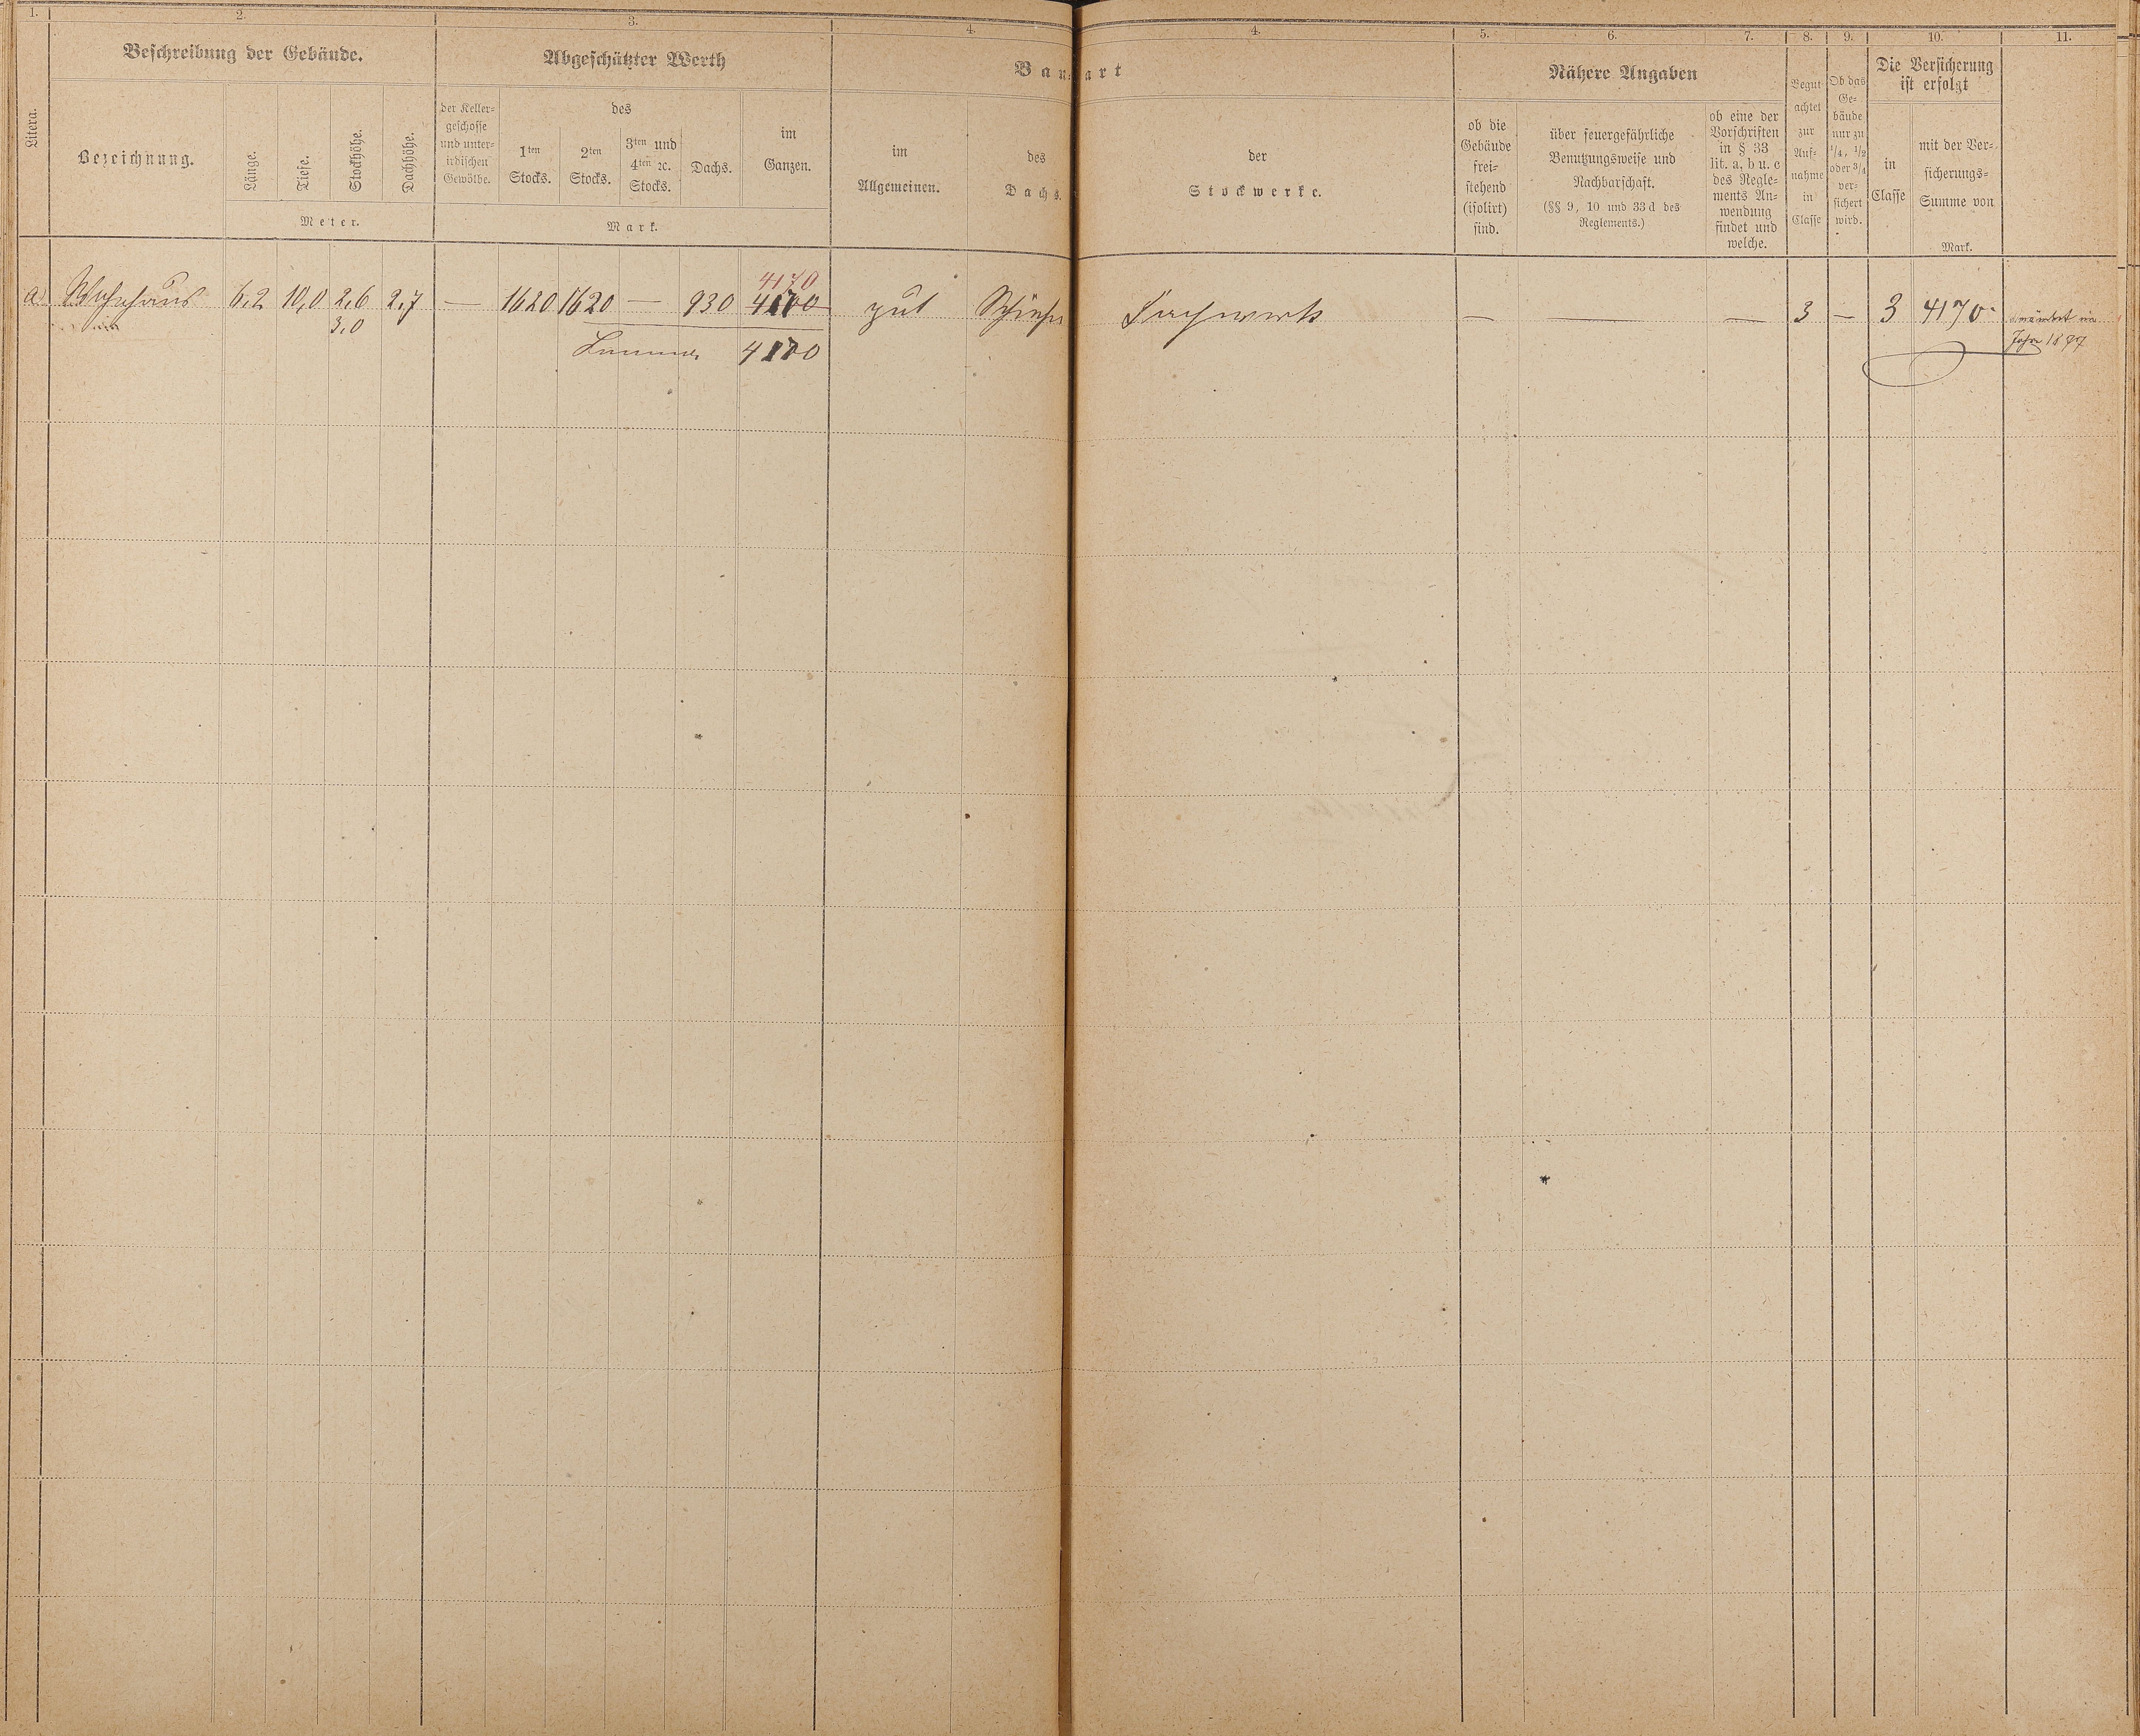 1. 2. 3. 4. 4. 5. 6. 7. 8. 9. 10. 11.
Litera.
Beschreibung der Gebäude.
Bezeichnung.
Länge.
Tiefe.
Stockhöhe.
Dachhöhe.
Meter.
Abgeschätzter Werth
der Keller-
geschosse
und unter-
irdischen
Gewölbe.
des
1ten
Stocks.
2ten
Stocks.
3ten und
4ten ꝛc.
Stocks.
Dachs.
im
Ganzen.
Mark.
Bau-art
im
Allgemeinen.
des
Dachs.
der
Stockwerke.
Nähere Angaben
ob die
Gebäude
frei-
stehend
(isolirt)
sind.
über feuergefährliche
Benutzungsweise und
Nachbarschaft.
(§§ 9, 10 und 33d des
Reglements.)
ob eine der
Vorschriften
in § 33
lit. a, b u. c
des Regle-
ments An-
wendung
findet und
welche.
Begut
achtet
zur
Auf-
nahme
in
Classe
Ob das
Ge-
bäude
nur zu
1/4, 1/2
oder 3/4
ver-
sichert
wird.
Die Versicherung
ist erfolgt
in
Classe
mit der Ver-
sicherungs-
Summe von
Mark.
4170
a. Wohnhaus 6,2 10,0 2,6 2,7 — 1620 1620 — 930 4170 gut Schiefer Fachwerk — — — 3 — 3 4170
3,0
Summa 4170
Jahre 1877